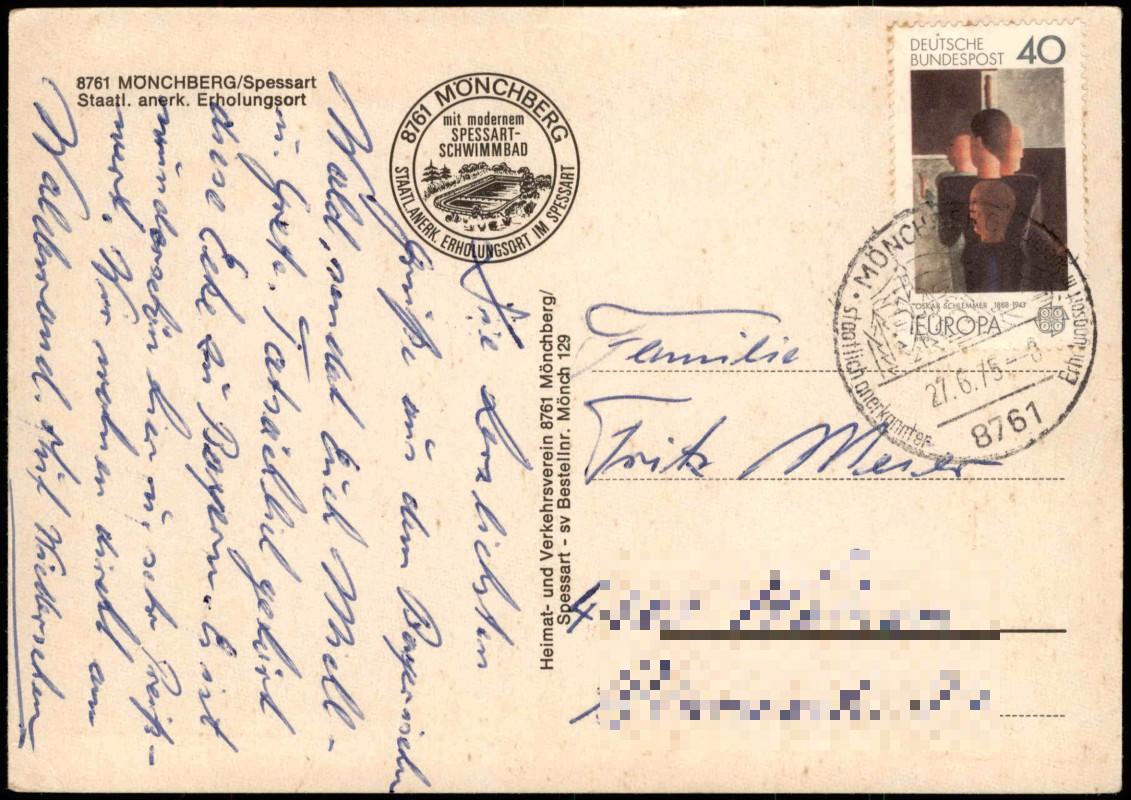 8761 MÖNCHBERG/Spessart
Staatl. anerk. Erholungsort
8761 MÖNCHBERG
mit modernem
SPESSART-
SCHWIMMBAD
STAATL. ANERK. ERHOLUNGSORT IM SPESSART
Die herzlichsten
Grüße aus dem Bayerischen
Wald, sendet Euch
u. Grete. Tatsächlich gehört
diese Ecke zu Bayern. Es ist
wunderschön hier u. sehr Preiß-
wert. Wir wohnen direkt am
Waldrand. Auf Wiedersehen
Heimat- und Verkehrsverein 8761 Mönchberg/
Spessart - sv Bestellnr. Mönch 129
DEUTSCHE
BUNDESPOST 40
OSKAR SCHLEMMER 1888-1943
EUROPA
MÖNCH
staatlich anerkannter
Erholungsort
27.6.75-8
8761
Familie
Fritz Meier
4